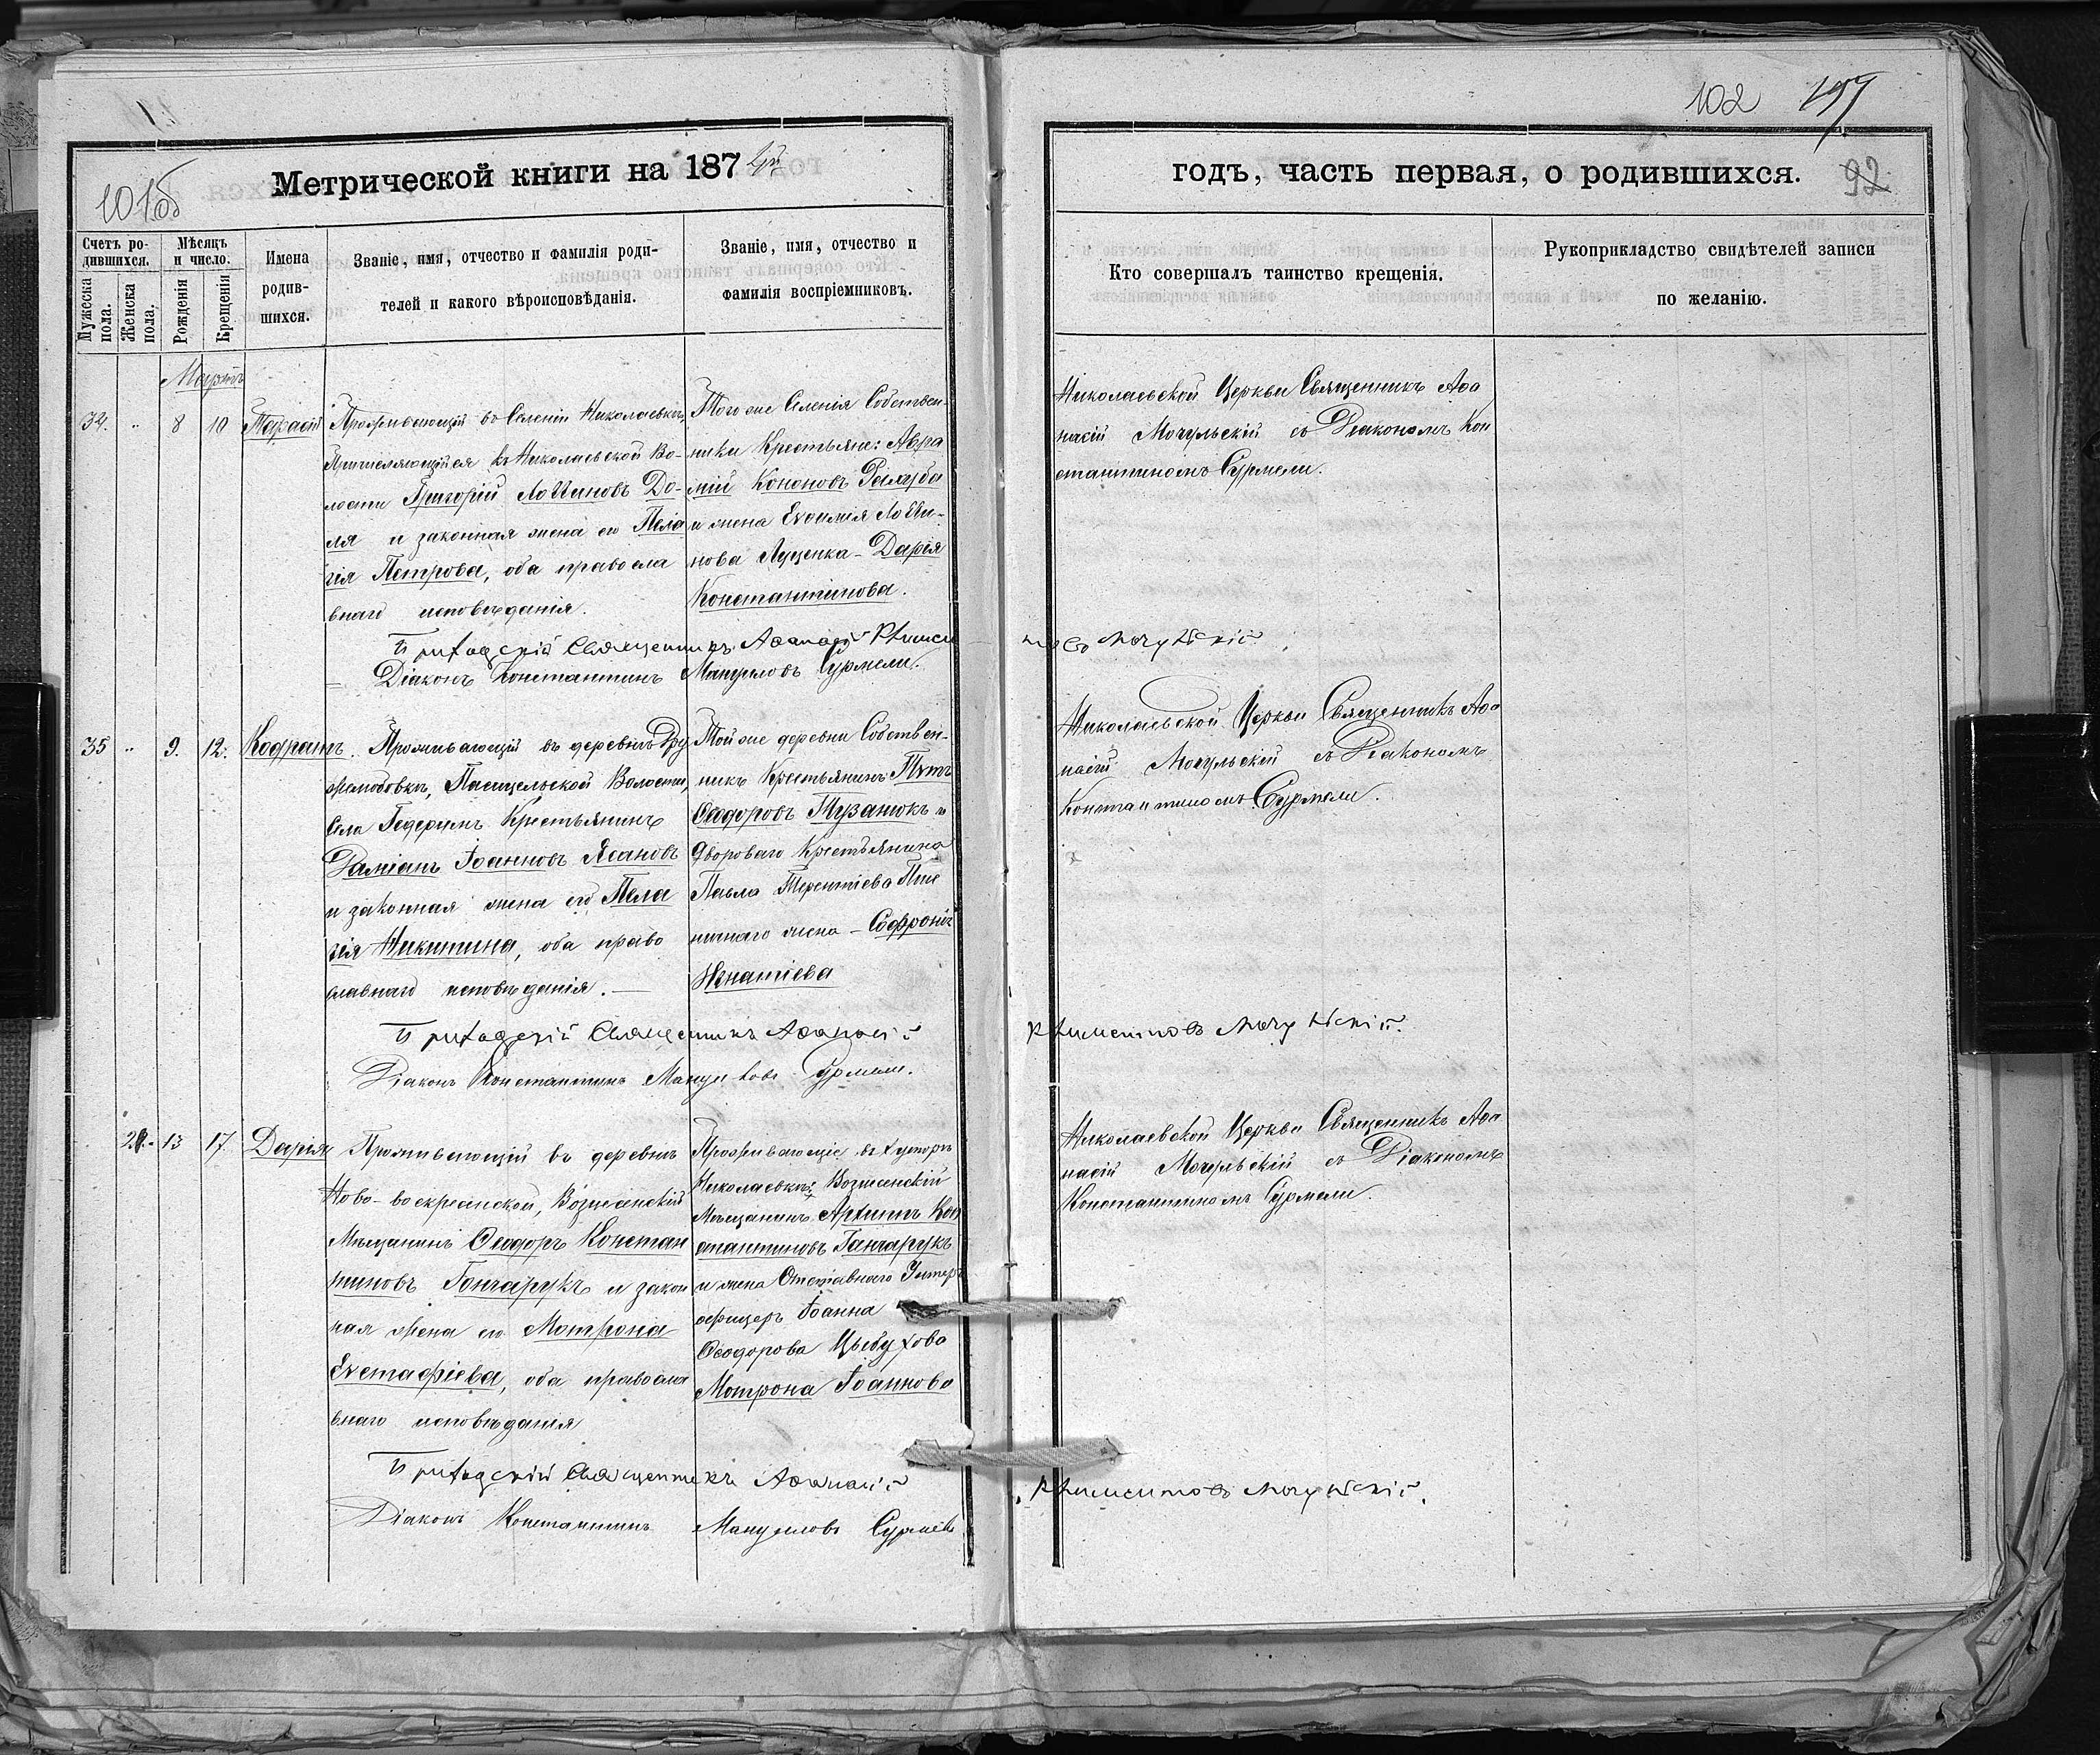 102 197
101об
Метрической книги на 187
годъ, часть первая, о родившихся.
92
Счетъ ро-
дившихся.
Мужеска
пола.
Женска
пола.
Мѣсяцъ
и число.
Рожденія
Крещенія
Имена
родив-
шихся.
Званіе, имя, отчество и фамилія роди-
телей и какого вѣроисповѣданія.
Званіе, имя, отчество и
фамилія воспріемниковъ.
Кто совершалъ таинство крещенія.
Рукоприкладство свидѣтелей записи
по желанію.
Мартъ
34. " 8 10 Тарасій
Проживающій въ Селеніи Николаевкѣ,
Причисляющійся къ Николаевской Во-
лости Григорій Логгиновъ До-
ля и законная жена его Пела
гія Петрова, оба правосла
внаго исповѣданія.
Того же Селенія Собствен-
ники Крестьяне: Авра
мій Кононовъ
и жена Евѳимія Логги-
нова Луценка - Дарія
Константинова.
Николаевской Церкви Священникъ Аѳа
насій Мочульскій съ Діакономъ Кон
стантиномъ Сурмели.
Приходскій Священникъ Аѳанасій Климен
товъ Мочульскій
Діаконъ Константинъ Мануиловъ Сурмели.
35 " 9. 12. Кодратъ.
Проживающій въ деревнѣ Дру
желюбовкѣ, Пасицельской Волости,
Села Гедеримъ Крестьянинъ
Даміанъ Іоанновъ Ясановъ
и законная жена его Пела
гія Никитина, оба право
славнаго исповѣданія. —
Той же деревни Собствен-
никъ Крестьянинъ Петръ
Ѳеодоровъ Музанокъ и
Двороваго Крестьянина
Павла Терентіева Пше
ничнаго жена - Софронія
Игнатіева
Николаевской Церкви Священникъ Аѳа
насій Мочульскій съ Діакономъ
Константиномъ Сурмели.
Приходскій Священникъ Аѳанасій
Климентовъ Мочульскій.
Діаконъ Константинъ Мануиловъ Сурмели.
29. 13 17. Дарія
Проживающій въ деревнѣ
Ново-воскресенской, Вознесенскій
Мѣщанинъ Ѳеодоръ Констан
тиновъ Гончарукъ и закон
ная жена его Мотрона
Евстафіева, оба правосла
внаго исповѣданія
Проживающіе въ Хуторѣ
Николаевкѣ: Вознесенскій
Мѣщанинъ Архипъ Кон
стантиновъ Ганчарукъ
и жена Отставнаго Унтеръ
офицеръ Іоанна
Ѳеодорова Цыбухова
Мотрона Іоаннова
Николаевской Церкви Священникъ Аѳа
насій Мочульскій съ Діакономъ
Константиномъ Сурмели.
Приходскій Священникъ Аѳанасій
Климентовъ Мочульскій.
Діаконъ Константинъ Мануиловъ Сурмели